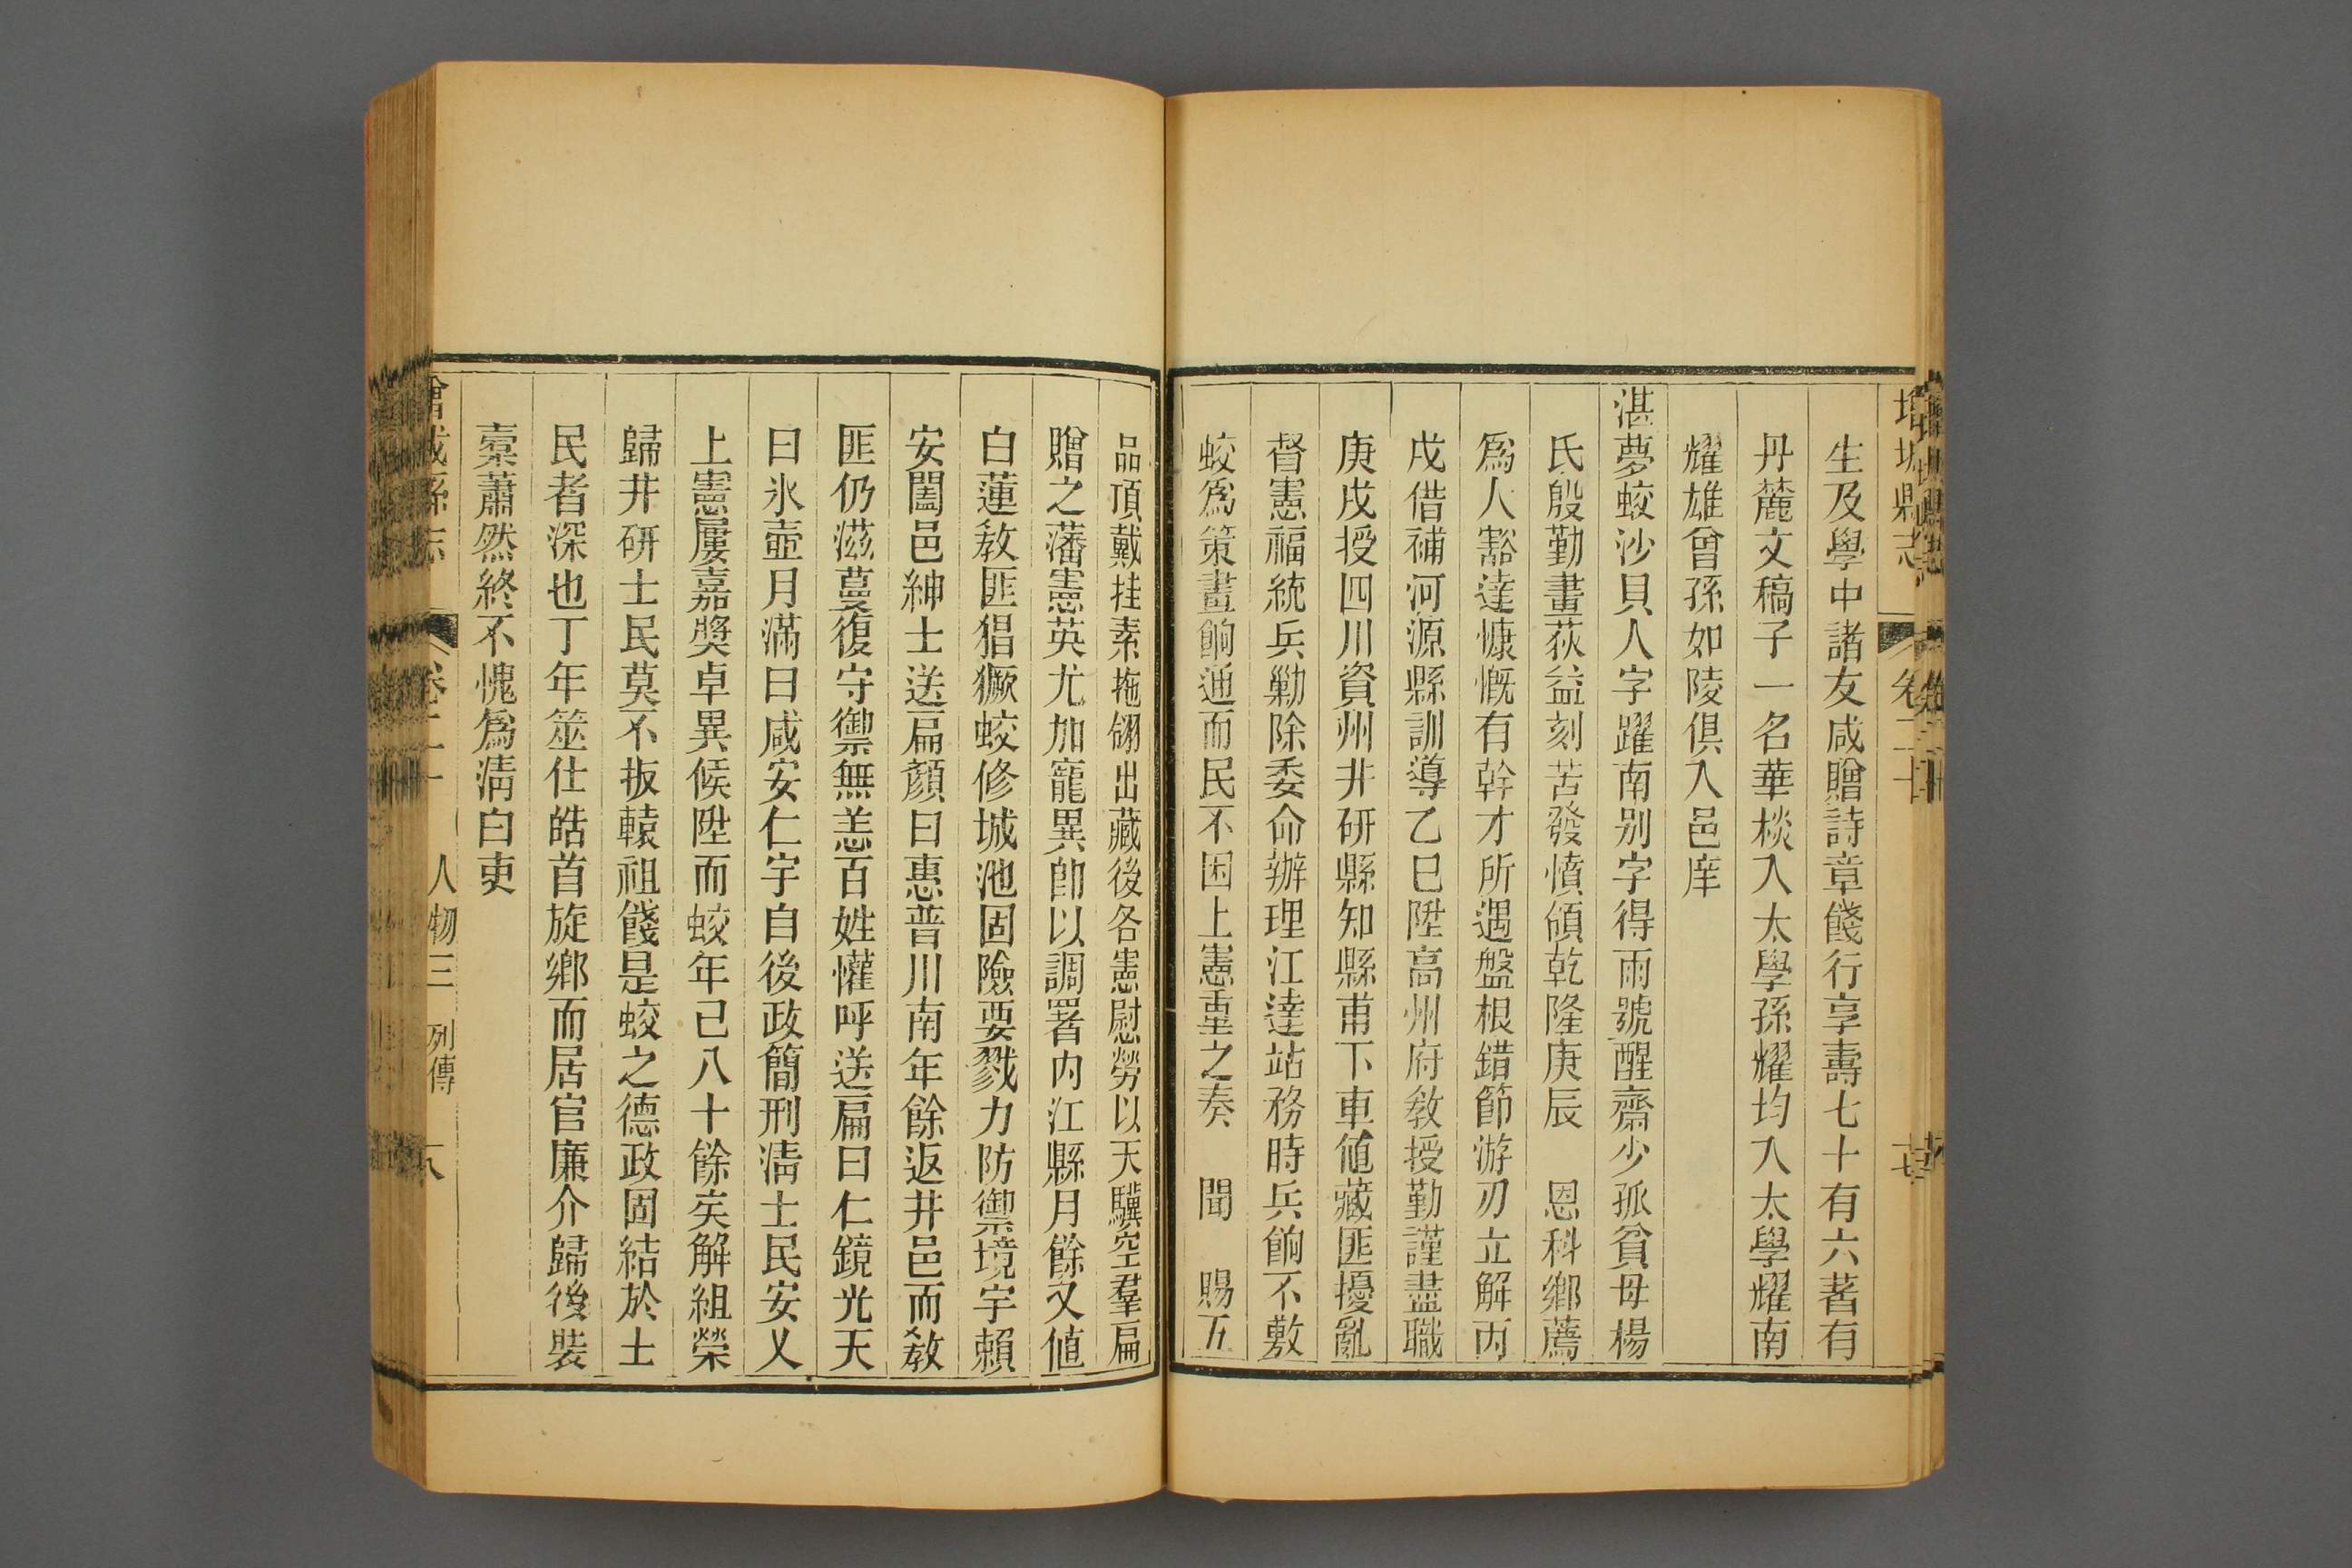 增城縣志
卷二十
生及學中諸友咸贈詩章餞行享壽七十有六著有
丹麓文稿子一名華棪入太學孫耀均入太學耀南
耀雄曾孫如陵俱入邑庠
湛夢蛟沙貝人字躍南别字得雨號醒齋少孤貧母楊
氏殷勤畫荻益刻苦發憤領乾隆庚辰 恩科鄉薦
爲人豁達慷慨有幹才所遇盤根錯節游刃立解丙
戌借補河源縣訓導乙巳陞高州府教授勤謹盡職
庚戌授四川資州井研縣知縣甫下車値藏匪擾亂
督憲福統兵勦除委命辦理江達站務時兵餉不敷
蛟爲策畫餉通而民不困上憲重之奏 聞 賜五
品頂戴挂素拖翎出藏後各憲慰勞以天驥空羣扁
贈之藩憲英尤加寵異卽以調署内江縣月餘又値
白蓮教匪猖獗蛟修城池固險要戮力防禦境宇賴
安闔邑紳士送扁顏曰惠普川南年餘返井邑而教
匪仍滋蔓復守禦無恙百姓懽呼送扁曰仁鏡光天
曰氷壺月滿曰咸安仁宇自後政簡刑淸士民安乂
上憲屢嘉獎卓異候陞而蛟年已八十餘矣解組榮
歸井研士民莫不扳轅祖餞是蛟之德政固結於士
民者深也丁年筮仕皓首旋鄉而居官廉介歸後裝
橐蕭然終不愧爲淸白吏
增城縣志
卷二十
人物三 列傳
十八